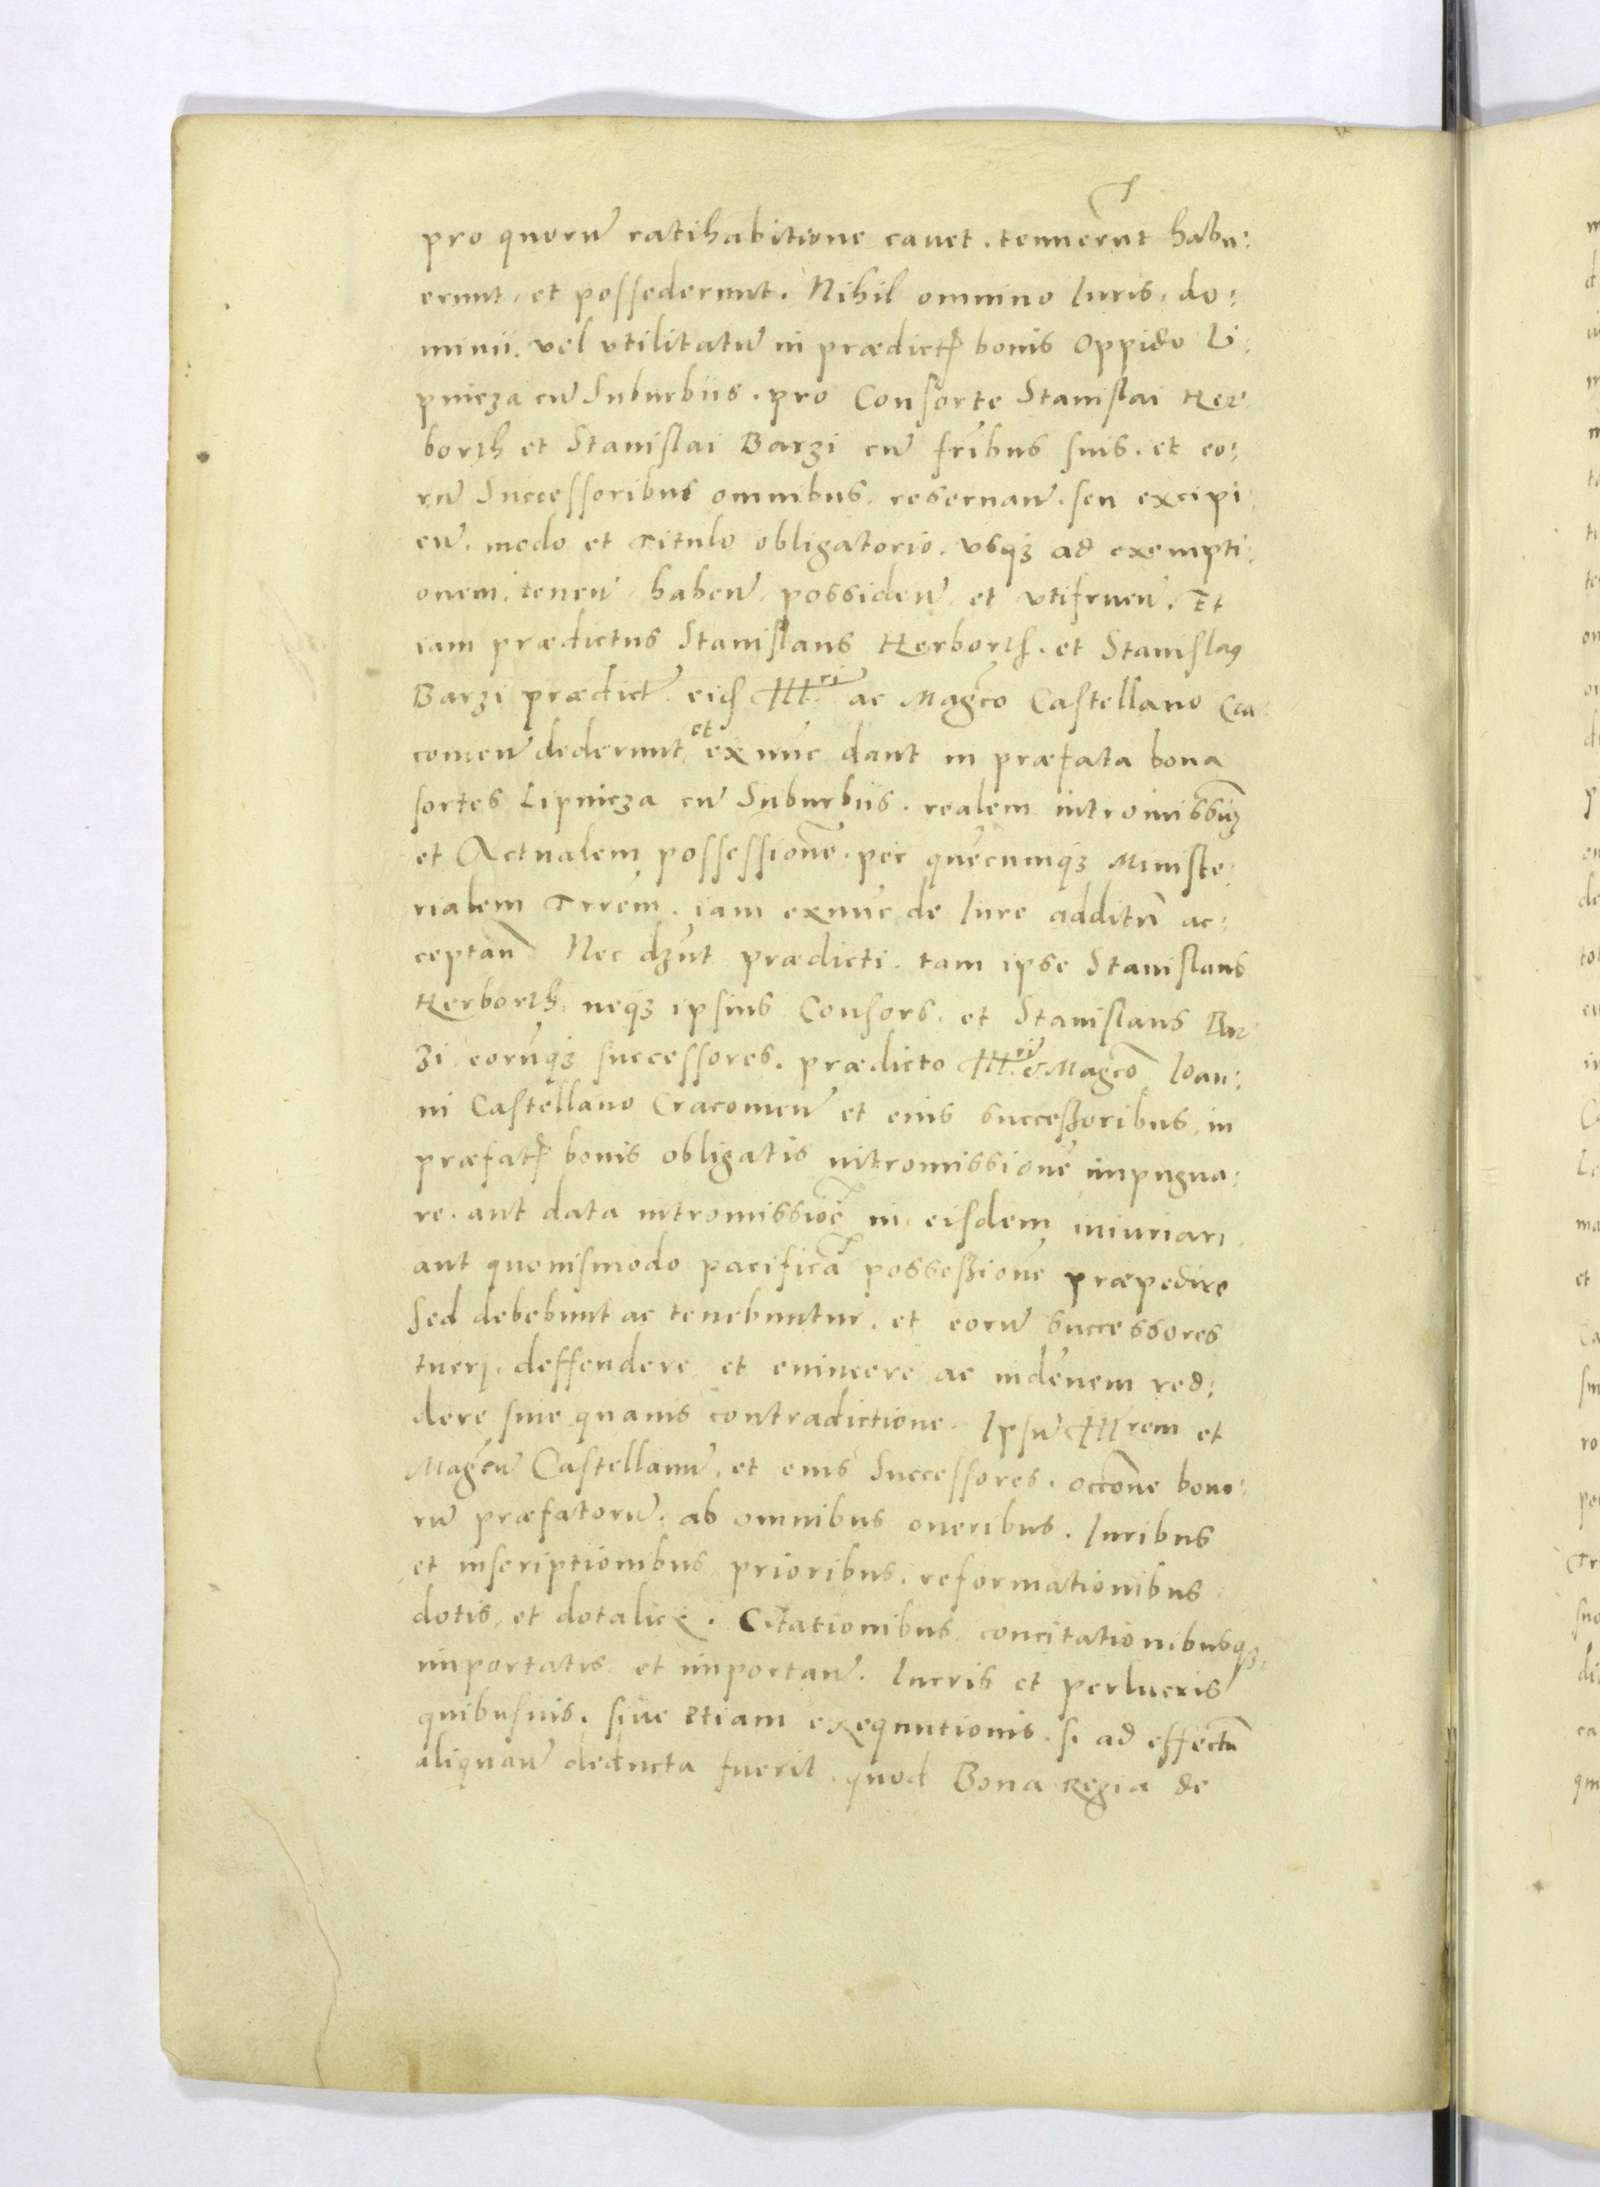 pro quorũ ratihabitione cauet. tenuerũt habu:
erunt, et possederunt. Nihil omnino Iuris, do:
minii, vel vtilitatũ in prædictꝭ bonis Oppido Li:
pnicza cũ Suburbiis. pro Consorte Stanislai Her
borth et Stanislai Barzi cũ fr̃ibus suis. et eo:
rũ Successoribus omnibus, reseruañ. seu excipi
eñ. modo et Titulo obligatorio. vsqꝫ ad exempti:
onem, teneñ habeñ, possideñ, et vtifrueñ. Et
iam prædictus Stanislaus Herborth. et Stanislaꝰ
Barzi prædict̃ eid̃ Ill.ri ac Magc̃o Castellano Cra:
couieñ dederunt et ex nũc dant in præfata bona
sortes Lipnicza cũ Suburbiis. realem intromissiõꝫ
et Actualem possessionẽ. per quẽcumqꝫ Ministe:
rialem Trr̃em. iam exnũc de Iure additũ ac:
ceptañ Nec dz̃ũt prædicti. tam ipse Stanislaus
Herborth, neqꝫ ipsius Consors. et Stanislaus Bar
zi eorũqꝫ successores. prædicto Ill.ri et Magc̃o Ioan:
ni Castellano Cracouieñ et eius successoribus, in
præfatꝭ bonis obligatis intromissionẽ impugna:
re. aut data intromissiõe in eisdem iniuriari.
aut quouismodo pacificã possessionẽ præpedire
Sed debebunt ac tenebuntur. et eorũ successores
tueri, deffendere et euincere ac indẽnem red:
dere sine quauis contradictione. Ipsũ Illrem et
Magc̃ũ Castellanũ, et eius Successores. occõne bono:
rũ præfatorũ. ab omnibus oneribus. Iuribus
et inscriptionibus prioribus. reformationibus
dotis, et dotalicii. Citationibus concitationibusqꝫ
importatis et importañ. lucris et perlucris
quibusuis. siue etiam exequutionis. si ad effectũ
aliquañ deducta fuerit. quod Bona Regia de